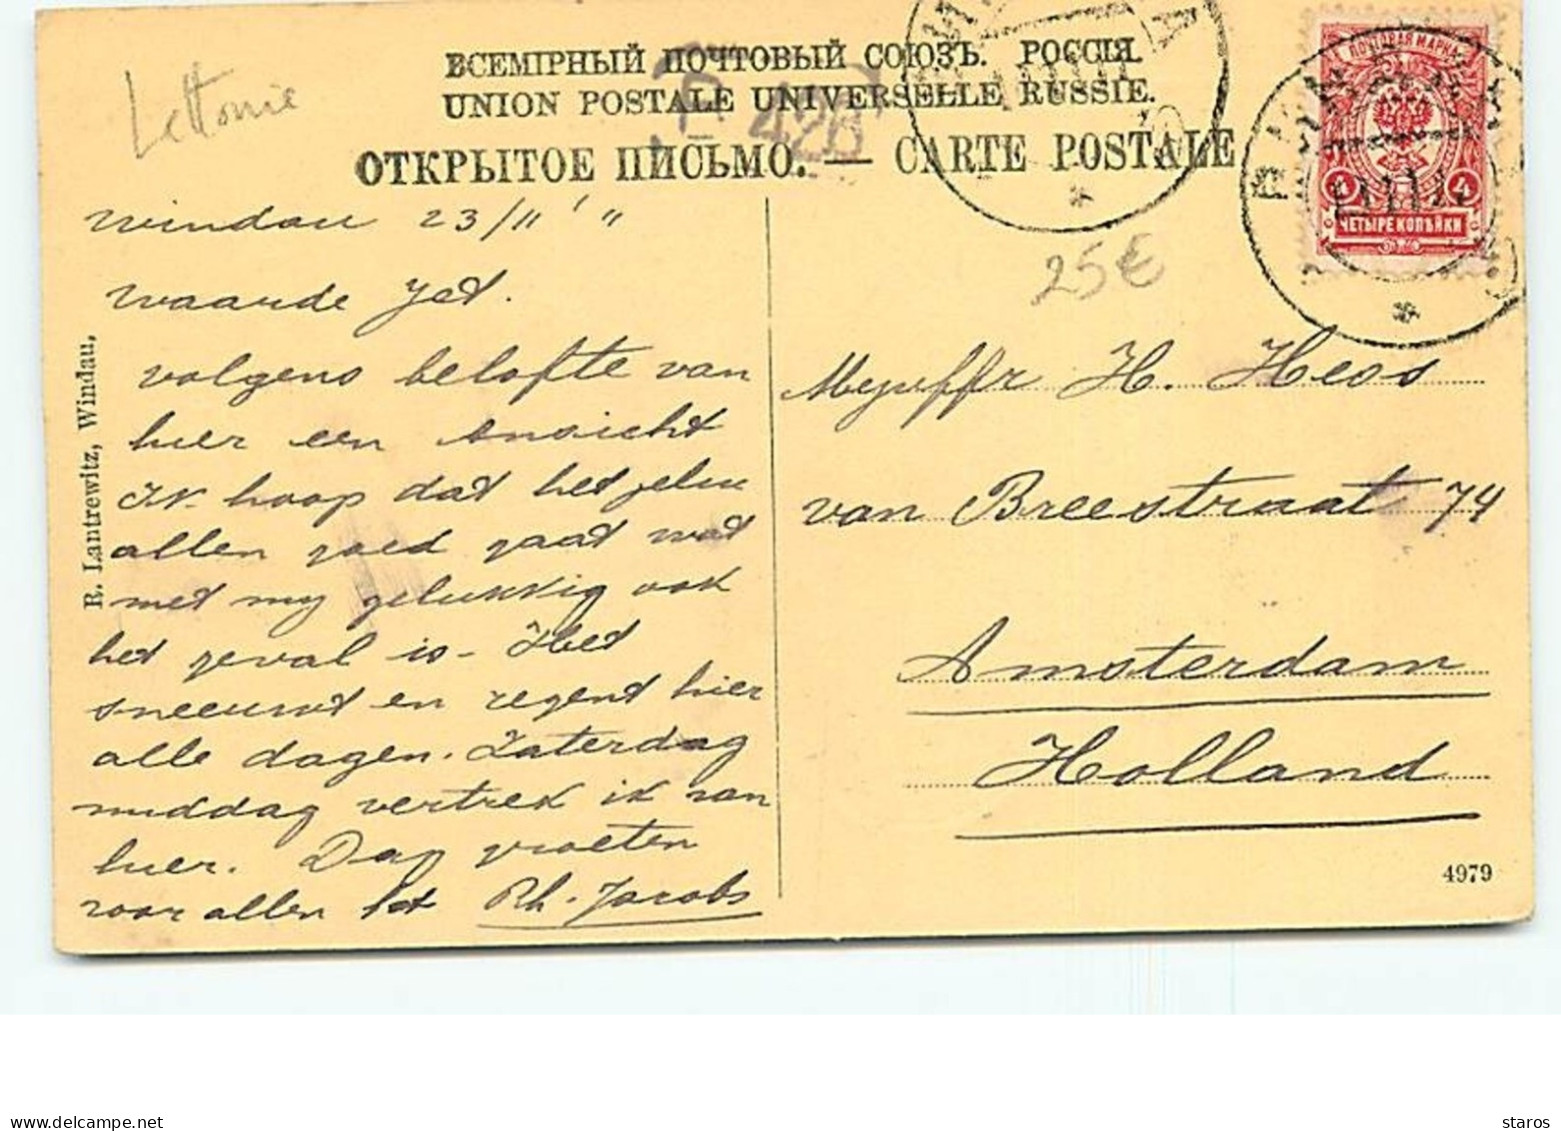 Lettonie
ВСЕМІРНЫЙ ПОЧТОВЫЙ СОЮЗЪ. РОССІЯ.
UNION POSTALE UNIVERSELLE RUSSIE.
ОТКРЫТОЕ ПИСЬМО. — CARTE POSTALE
428
ПОЧТОВАЯ МАРКА
4 4
ЧЕТЫРЕ КОПѢЙКИ
25€
Windau 23/11 ' "
Waarde Jet.
volgens belofte van
hier een Ansicht
Ik hoop dat het
allen goed gaat wat
met my gelukkig ook
het geval is - Het
sneeuwt en regent hier
alle dagen. Zaterdag
middag vertrek ik van
hier. Dag groeten
voor allen Rh. Jacobs
R. Lantrewitz, Windau.
Mejuffr H. Heos
van Breestraat 74
Amsterdam
Holland
4979
staros
delcampe.net